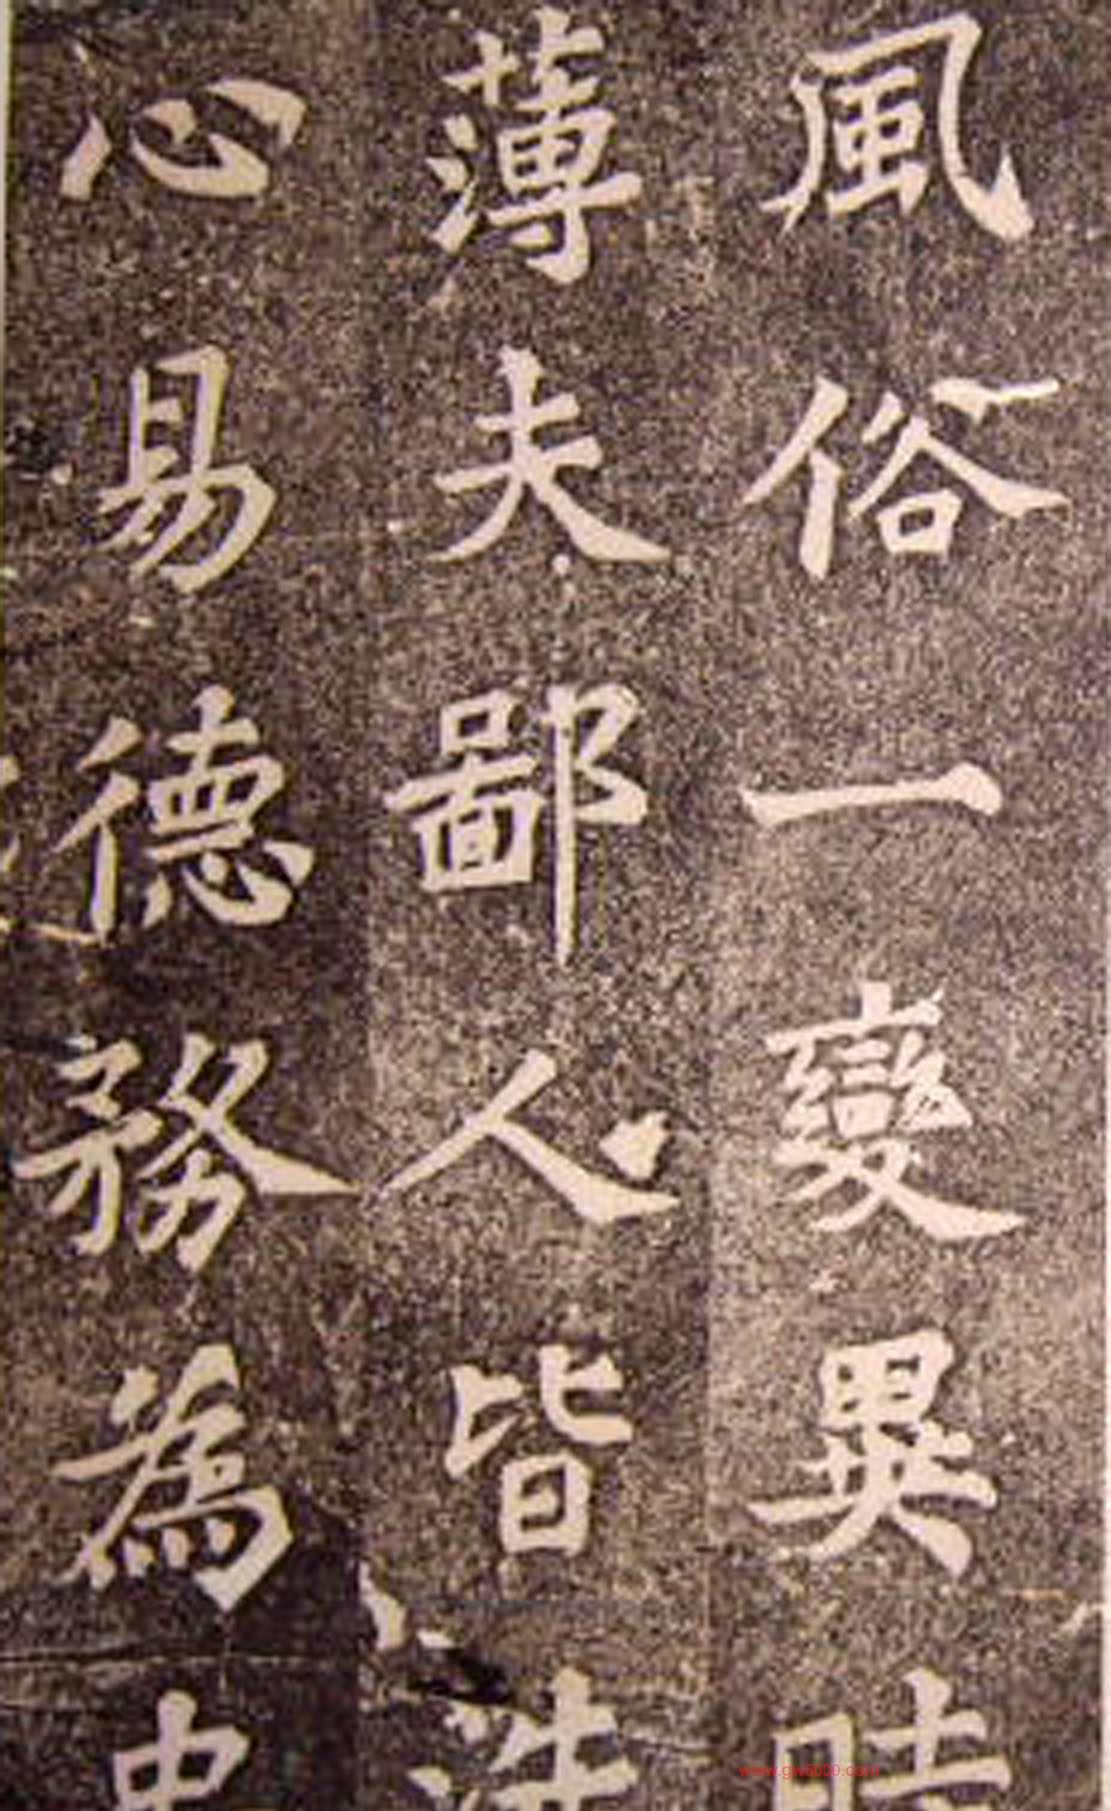 風俗一變異時
薄夫鄙人皆洗
心易德務為忠
www.gw6000.com